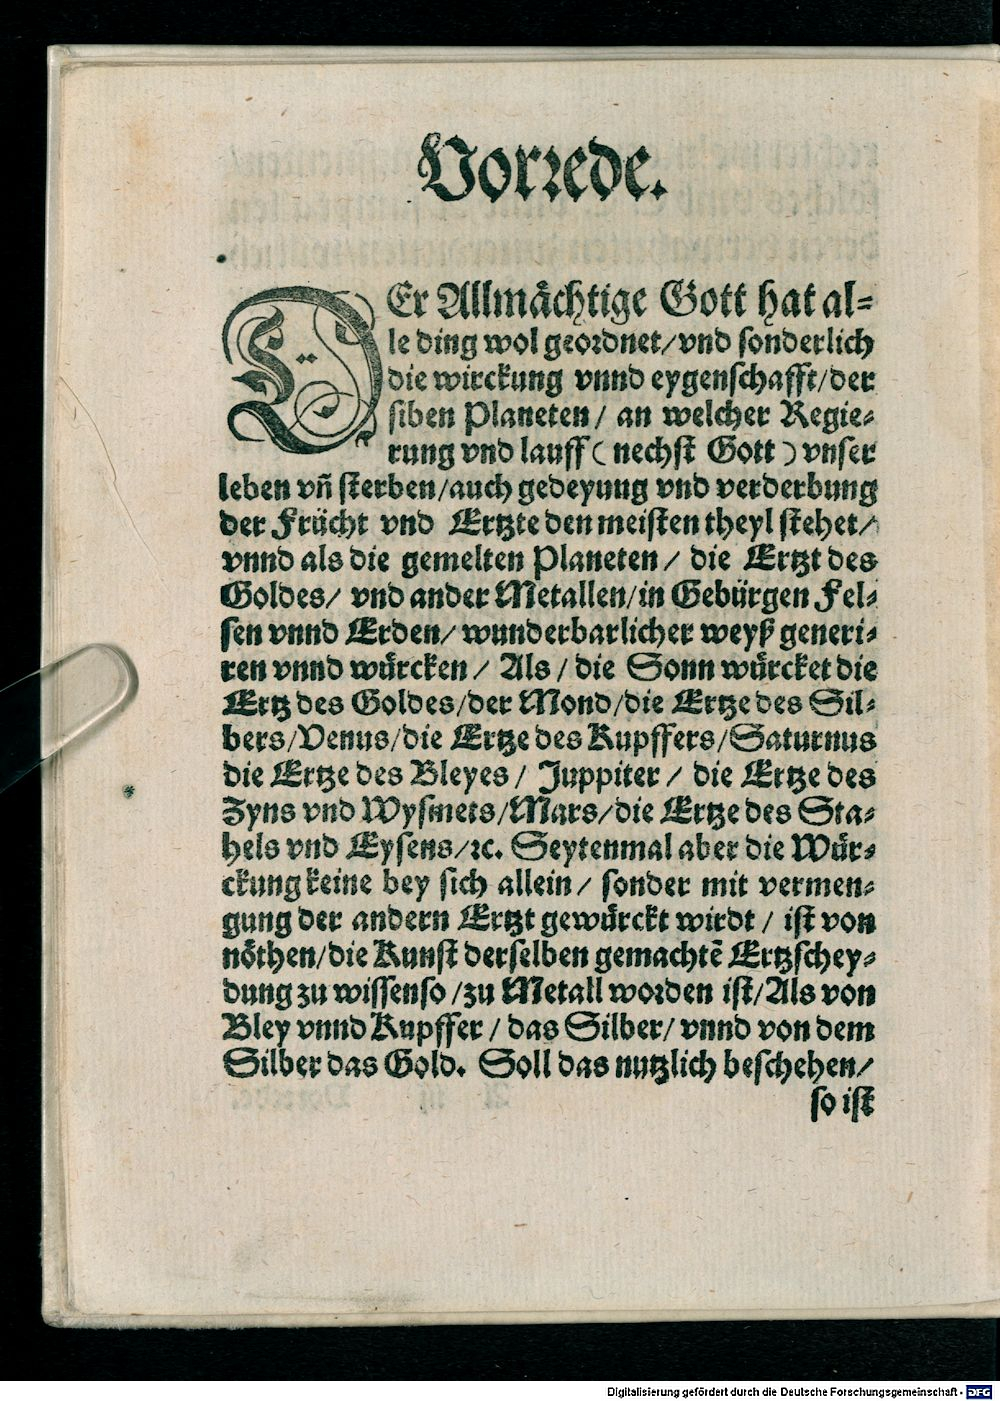 Vorrede.
DEr Allmåchtige Gott hat al-
le ding wol geordnet/vnd sonderlich
die wirckung vnnd eygenschafft/der
siben Planeten/ an welcher Regie-
rung vnd lauff ( nechst Gott ) vnser
leben vñ sterben/auch gedeyung vnd verderbung
der Frücht vnd Ertzte den meisten theyl stehet/
vnnd als die gemelten Planeten/ die Ertzt des
Goldes/ vnd ander Metallen/in Gebürgen Fel-
sen vnnd Erden/ wunderbarlicher weyß generi-
ren vnnd würcken/ Als/ die Sonn würcket die
Ertz des Goldes/der Mond/die Ertze des Sil-
bers/Venus/die Ertze des Kupffers/Saturnus
die Ertze des Bleyes/ Juppiter/ die Ertze des
Zyns vnd Wysmets/Mars/die Ertze des Sta-
hels vnd Eysens/ꝛc. Seytenmal aber die Wür-
ckung keine bey sich allein/ sonder mit vermen-
gung der andern Ertzt gewürckt wirdt/ ist von
nöthen/die Kunst derselben gemachtẽ Ertzschey-
dung zu wissen so/zu Metall worden ist/Als von
Bley vnnd Kupffer/ das Silber/ vnnd von dem
Silber das Gold. Soll das nutzlich beschehen/
so ist
Digitalisierung gefördert durch die Deutsche Forschungsgemeinschaft - DFG